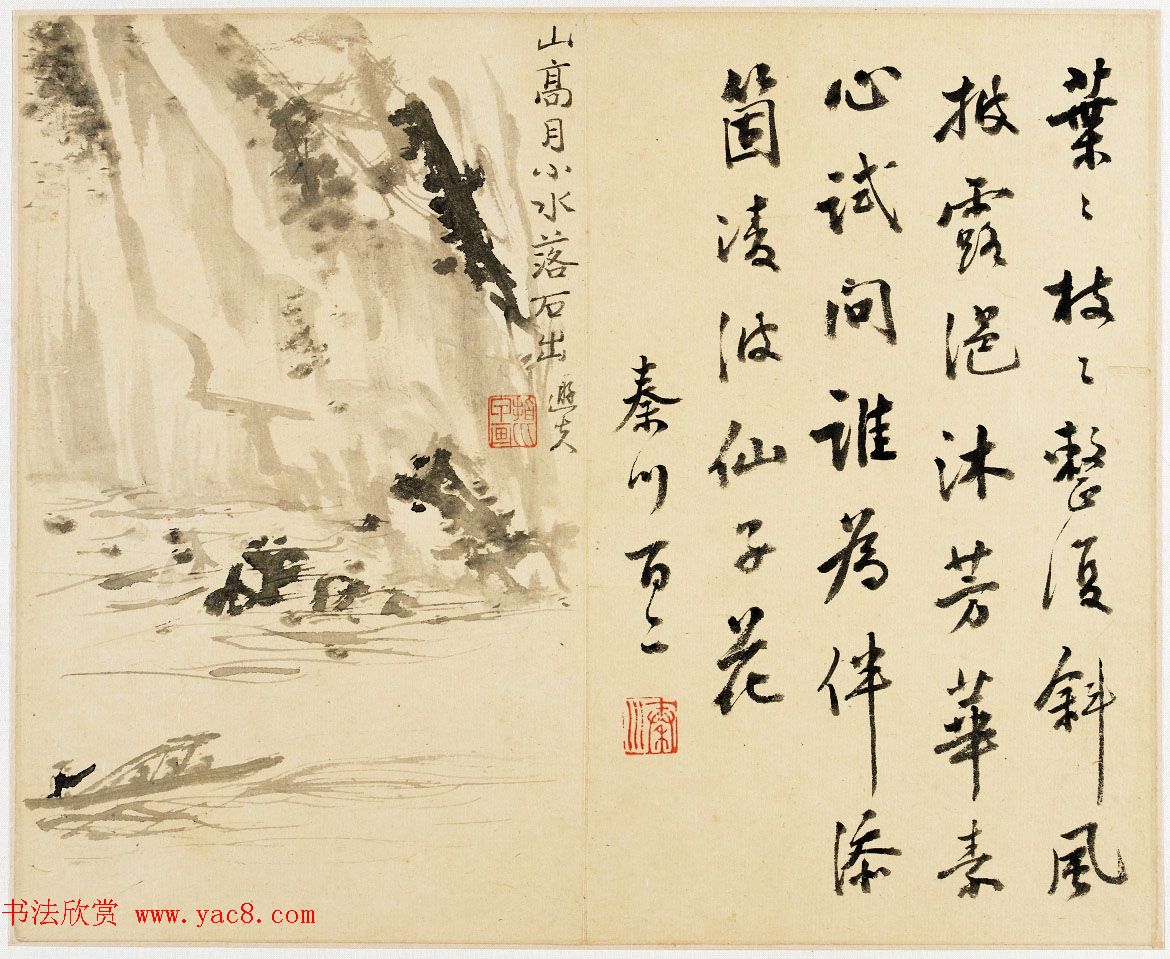 葉〻枝〻整復斜風
披露浥沐芳華素
心試問誰為伴添
箇淩波仙子花
秦川百二
秦川
山高月小水落石出
书法欣赏 www.yac8.com